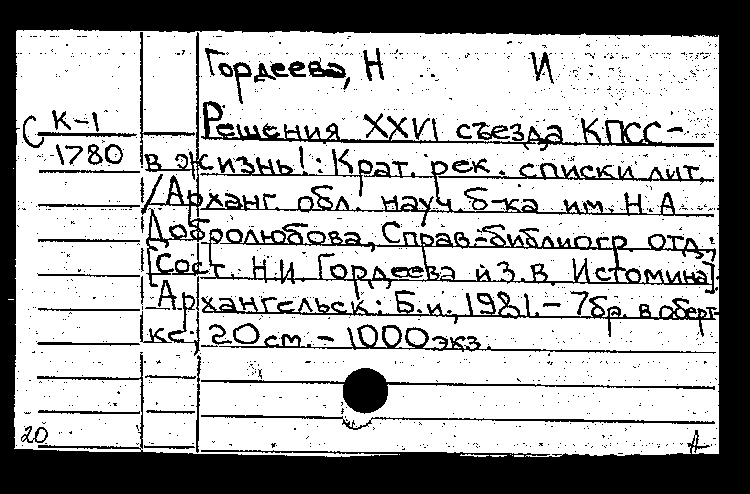 Гордеева, Н И
С К-1
1780
Решения XXVI съезда КПСС-
в жизнь!: Крат. рек. списки лит.
/Арханг. обл. науч. б-ка им. Н.А
Добролюбова, Справ.-библиогр. отд.;
[Сост. Н.И. Гордеева и З.В. Истомина].
Архангельск: Б.и., 1981.- 7бр. в оберт-
ке; 20см. - 1000экз.
20
А